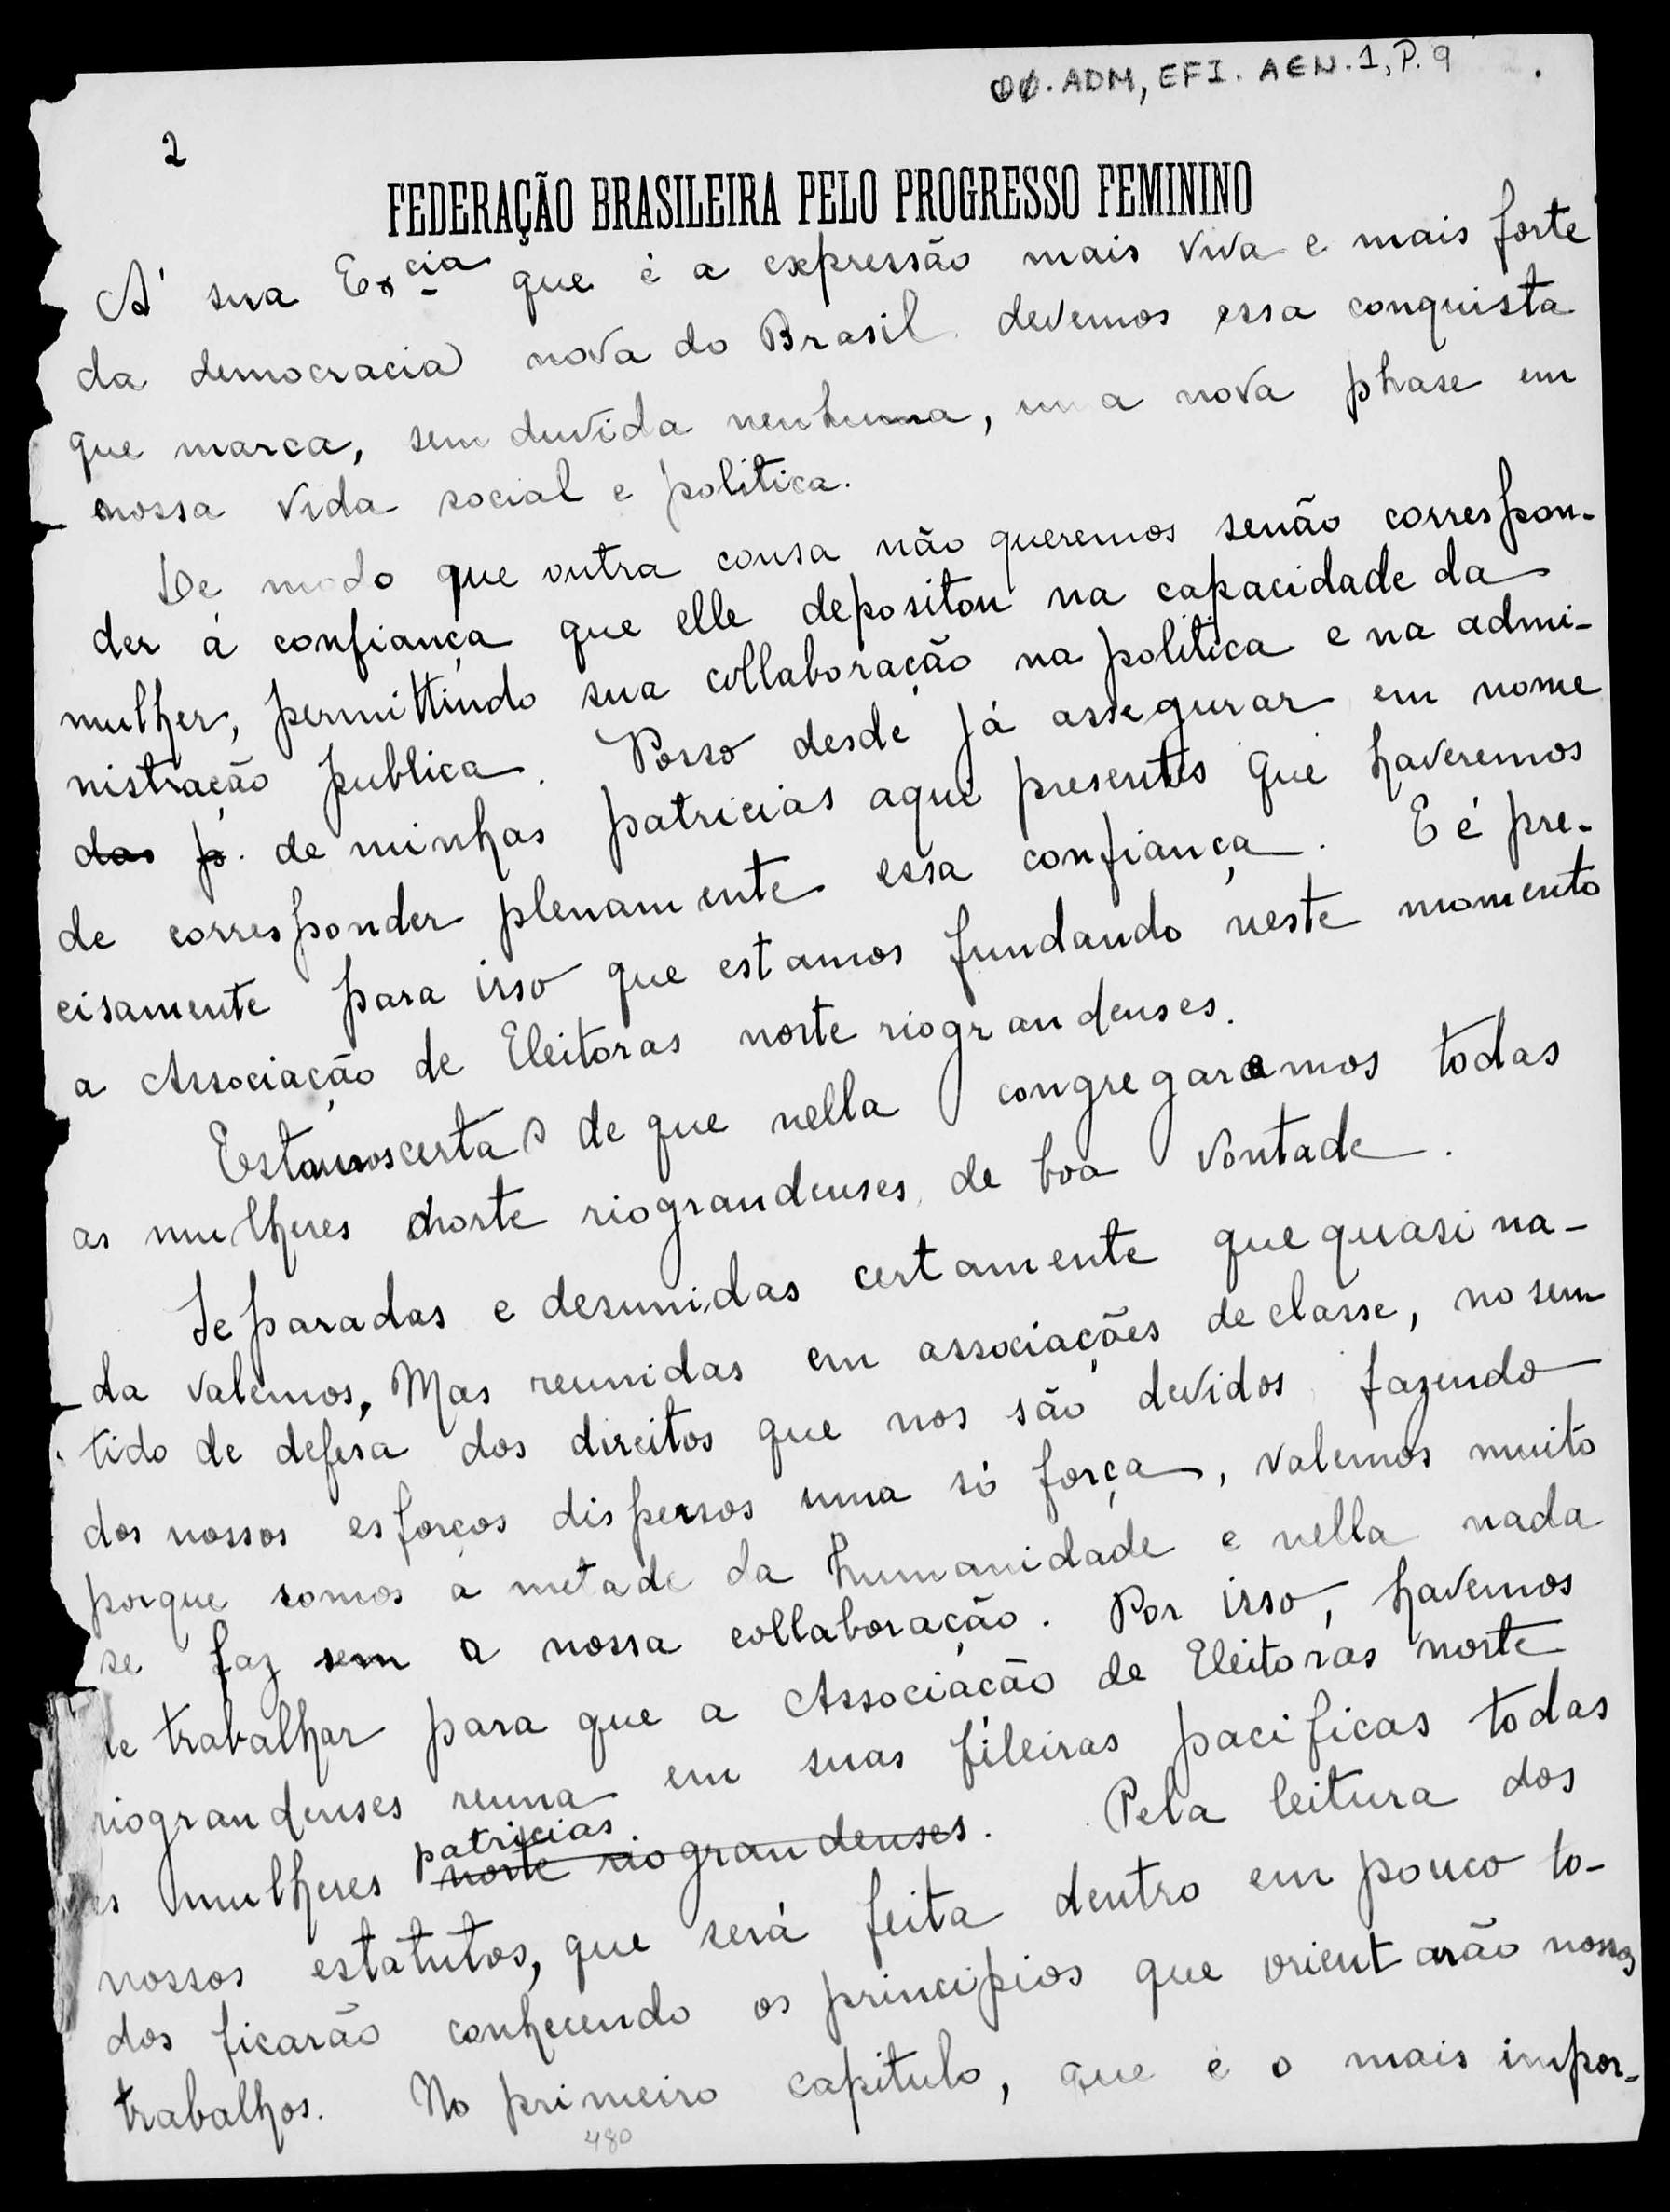 Q0.ADM, EFI. AEN.1, P.9
2
FEDERAÇÃO BRASILEIRA PELO PROGRESSO FEMININO
A' sua Excia que é a expressão mais viva e mais forte
da democracia nova do Brasil devemos essa conquista
que marca, sem duvida nenhuma, uma nova phase em
nossa vida social e politica.
De modo que outra cousa não queremos senão correspon-
der á confiança que elle depositou na capacidade da
mulher, permittindo sua collaboração na politica e na admi-
nistração publica. Posso desde já assegurar em nome
das p. de minhas patricias aqui presentes que haveremos
de corresponder plenamente essa confiança. E é pre-
cisamente para isso que estamos fundando neste momento
a Associação de Eleitoras norte riograndenses.
Estamos certas de que nella congregaremos todas
as mulheres norte riograndenses de boa vontade.
Separadas e desunidas certamente que quasi na-
da valemos, Mas reunidas em associações de classe, no sen-
tido de defesa dos direitos que nos são devidos fazendo
dos nossos esforços dispersos uma só força, valemos muito
porque somos a metade da humanidade e nella nada
se faz sem a nossa collaboração. Por isso, havemos
de trabalhar para que a Associação de Eleitoras norte
riograndenses reuna em suas fileiras pacificas todas
as mulheres patricias norte riograndenses. Pela leitura dos
nossos estatutos, que será feita dentro em pouco to-
dos ficarão conhecendo os principios que orientarão nossos
trabalhos. No primeiro capitulo, que é o mais impor-
480